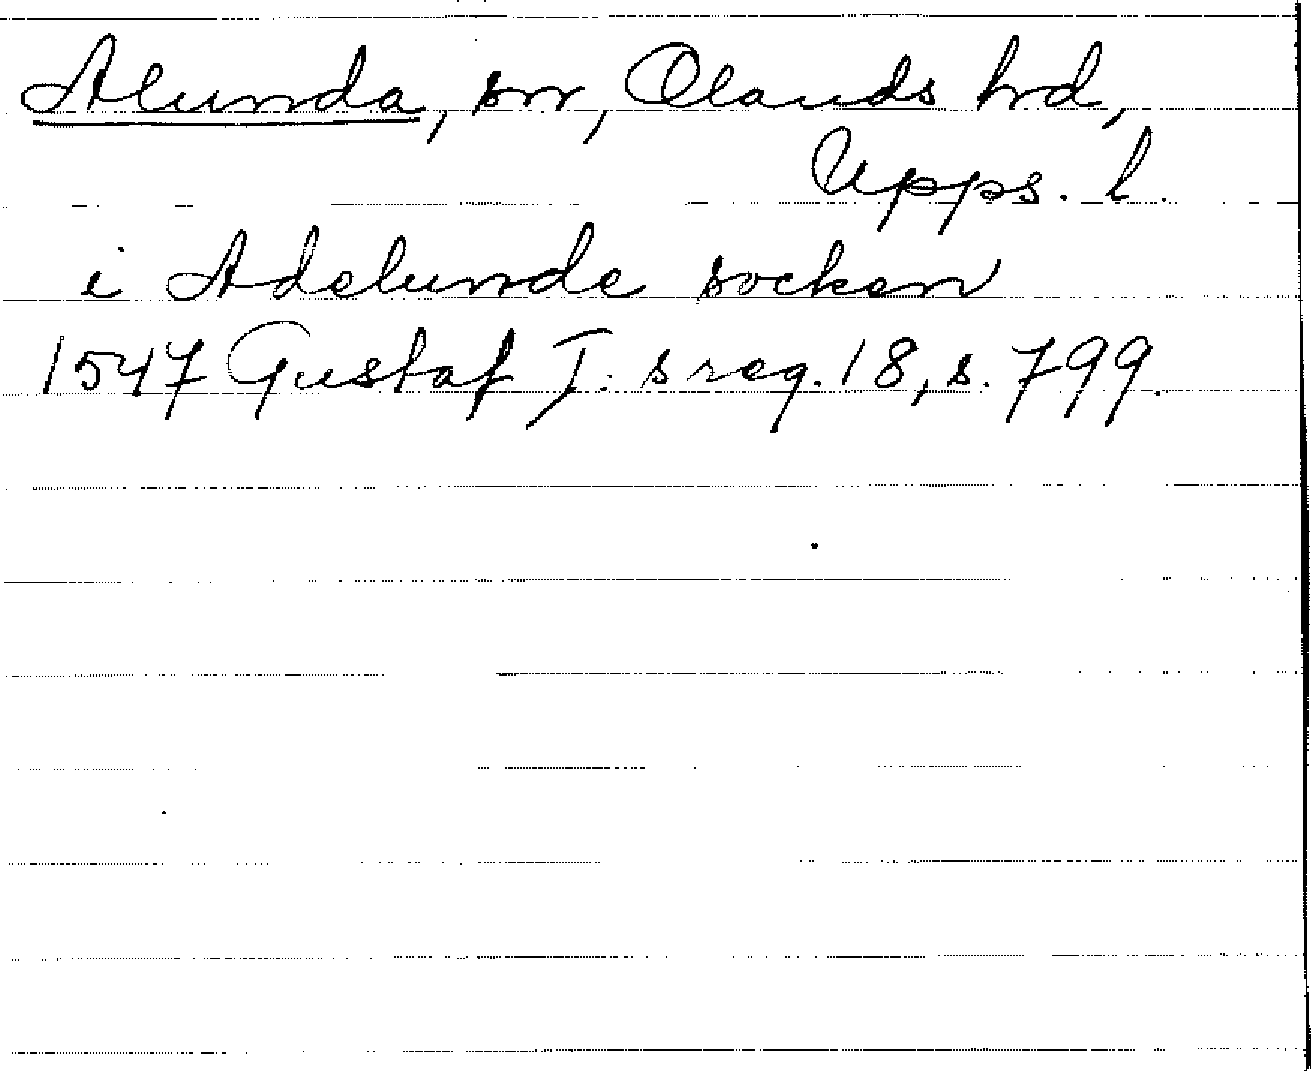 Alunda, sn, Olands hd,
Upps. l.
i Adelunde socken
1547 Gustaf I. s reg. 18, s. 799.